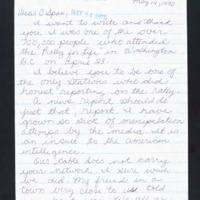 May 14, 1990
Dear C Span,
I want to write and thank
you. I was one of the over
700,000 people who attended
the Rally for life in Washington
D.C. on April 28.
I believe you to be one of
the only stations who did
honest reporting on the rally.
A news report should do
just that, report. I have
grown so sick of manipulation
attemps by the media. It is
an insult to the american
intelligence.
Our cable does not carry
your network. I sure wish
we did. My friend in a
town very close to us told